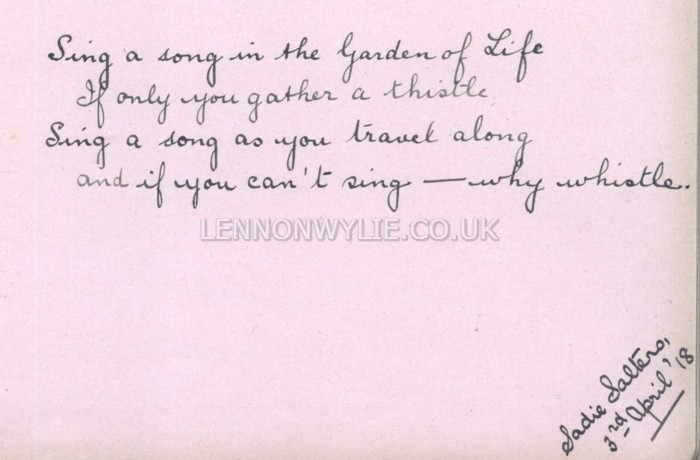 Sing a song in the Garden of Life
If only you gather a thistle
Sing a song as you travel along
and if you can't sing — why whistle.
LENNONWYLIE.CO.UK
Sadie Salters,
3rd April '18